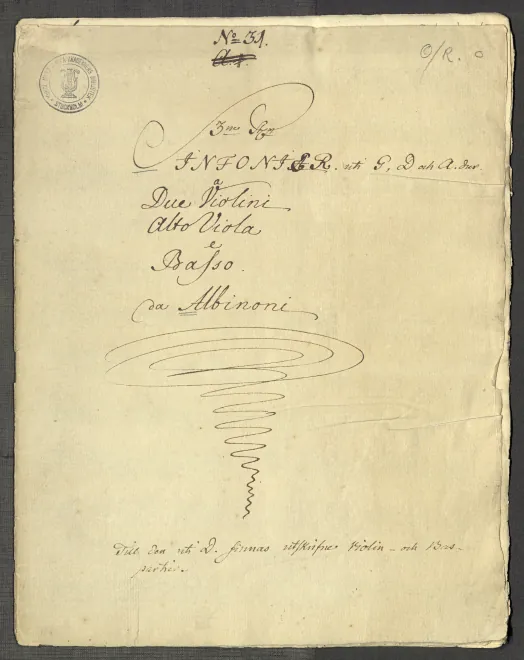 No 31.
O/R. O
STOCKHOLM
3ne
SINFONIER. uti G, D och A. dur.
a
Due Violini
Alto Viola
e
Basso.
da Albinoni
Till den uti D. finnas utskrifne Violin- och Bas-
partier.